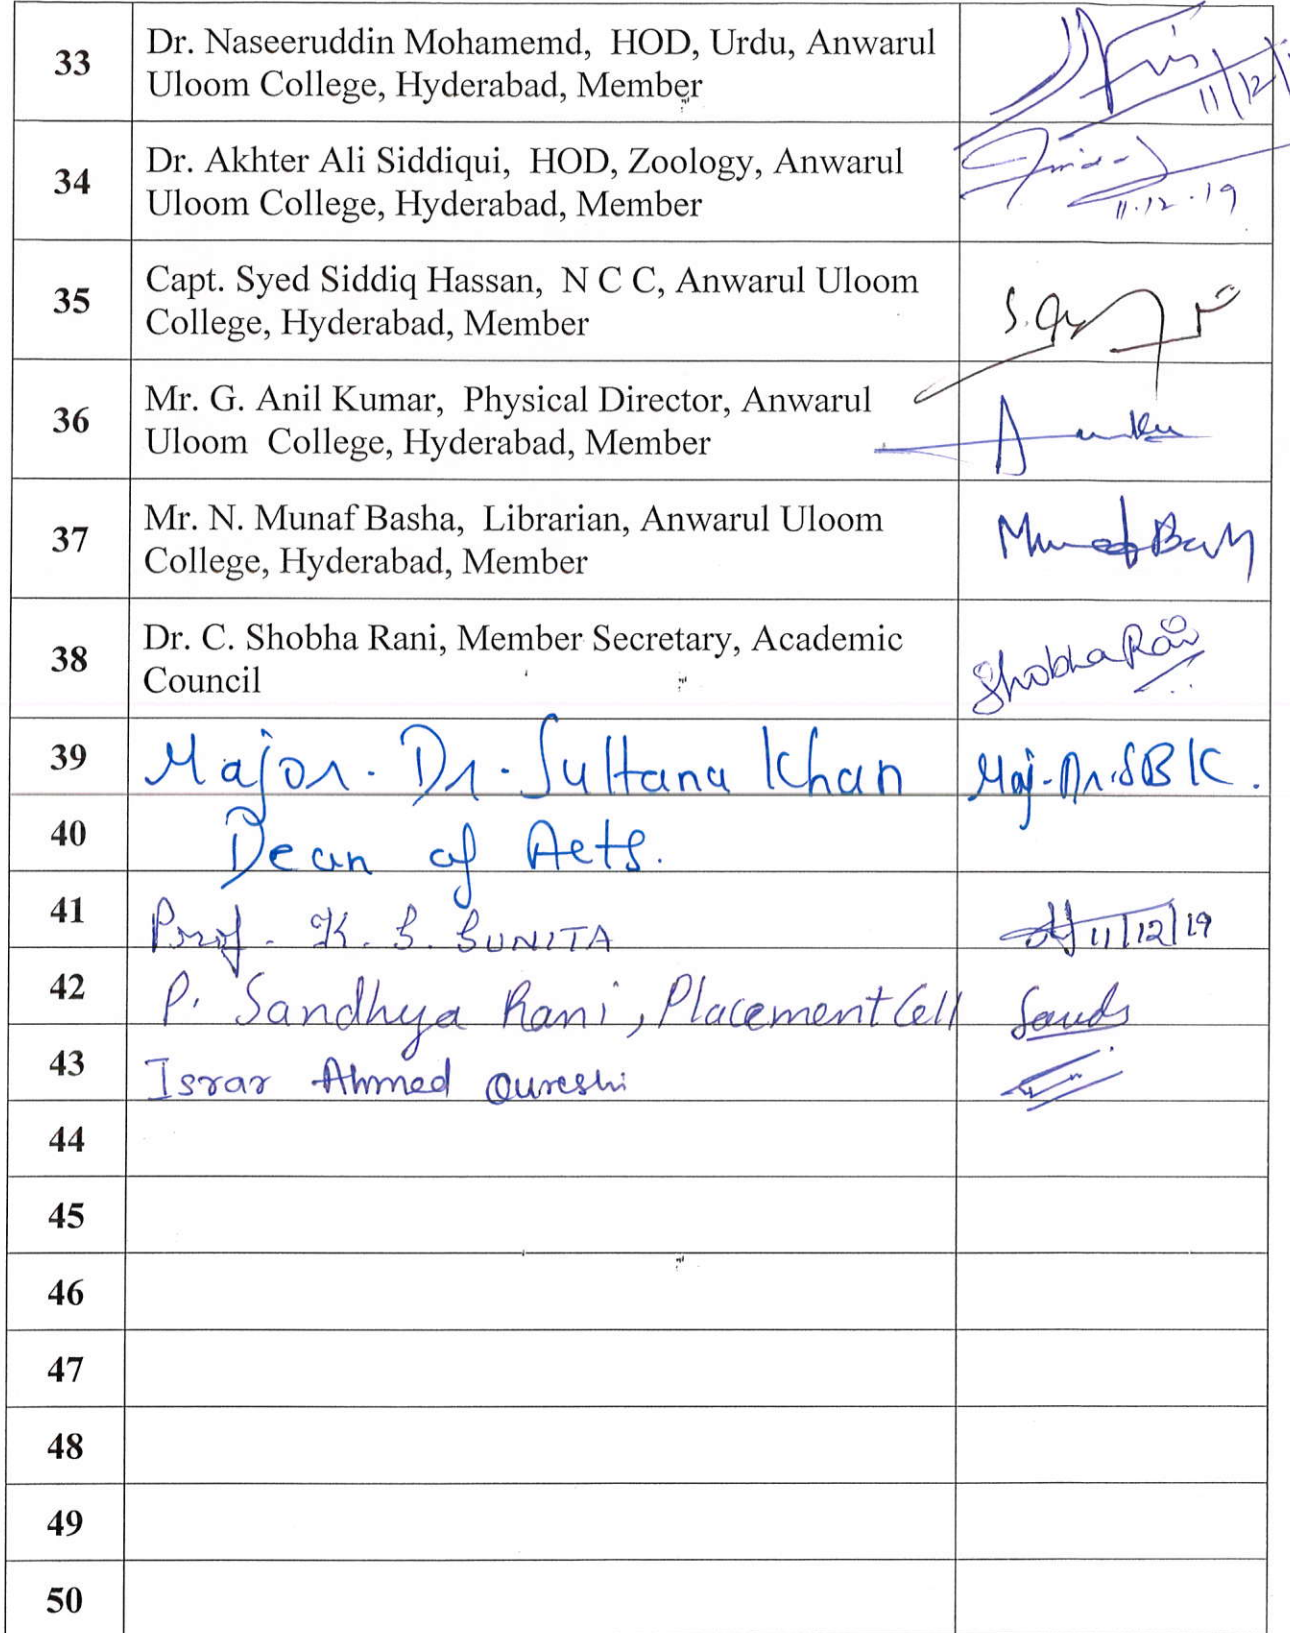 33
Dr. Naseeruddin Mohamemd, HOD, Urdu, Anwarul
Uloom College, Hyderabad, Member
11/12/
34
Dr. Akhter Ali Siddiqui, HOD, Zoology, Anwarul
Uloom College, Hyderabad, Member
11.12.19
35
Capt. Syed Siddiq Hassan, N C C, Anwarul Uloom
College, Hyderabad, Member
36
Mr. G. Anil Kumar, Physical Director, Anwarul
Uloom College, Hyderabad, Member
37
Mr. N. Munaf Basha, Librarian, Anwarul Uloom
College, Hyderabad, Member
38
Dr. C. Shobha Rani, Member Secretary, Academic
Council
Shobha Rani
39
Major. Dr. Sultana Khan
Maj. Dr. SBK.
40
Dean of Arts.
41
Prof. K. S. SUNITA
11/12/19
42
P. Sandhya Rani, Placement Cell
43
Israr Ahmed Qureshi
44
45
46
47
48
49
50